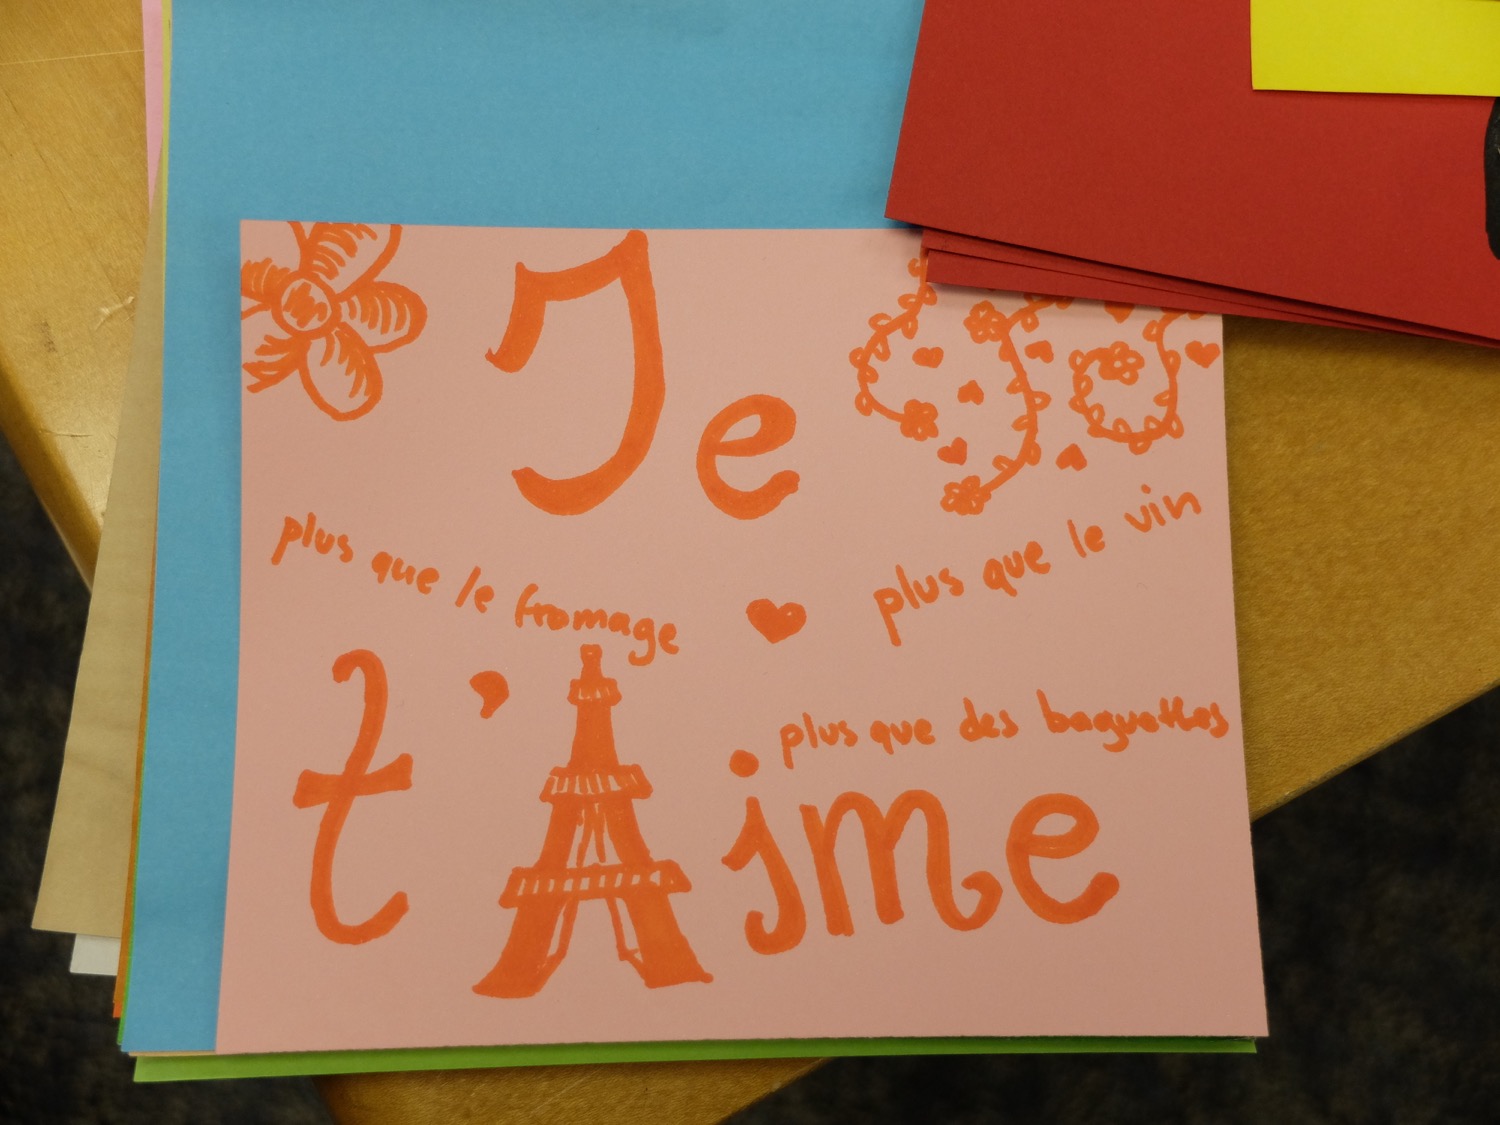 Je
plus que le fromage
plus que le vin
t'Aime
plus que des baguettes